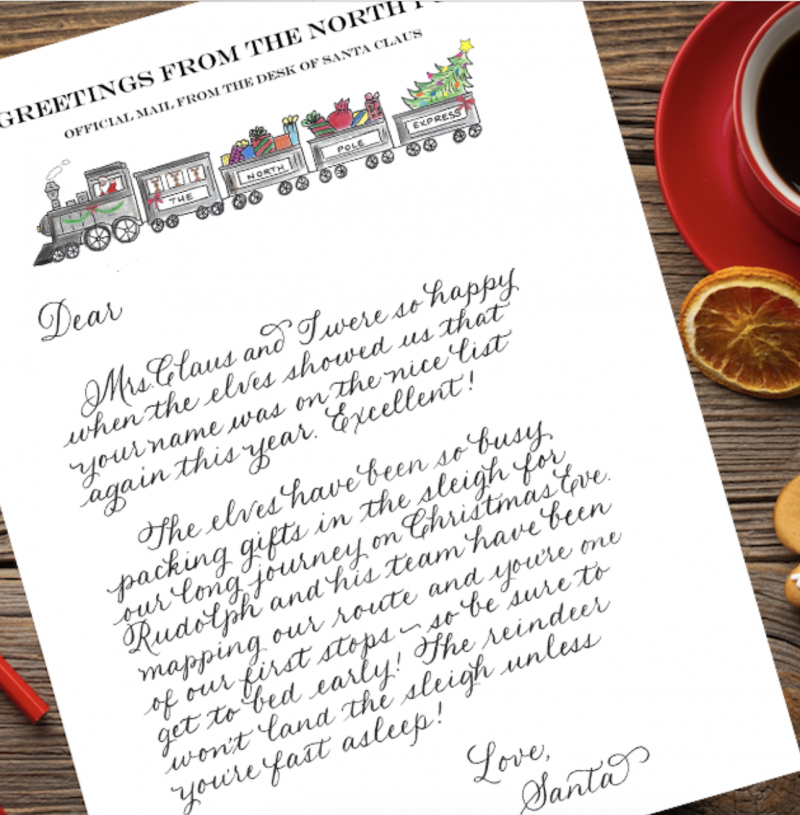 GREETINGS FROM THE NORTH
OFFICIAL MAIL FROM THE DESK OF SANTA CLAUS
THE NORTH POLE EXPRESS
Dear
Mrs. Claus and I were so happy
when the elves showed us that
your name was on the nice list
again this year. Excellent!
The elves have been so busy
packing gifts in the sleigh for
our long journey on Christmas Eve.
Rudolph and his team have been
mapping our route and you're one
of our first stops ~ so be sure to
get to bed early! The reindeer
won't land the sleigh unless
you're fast asleep!
Love,
Santa